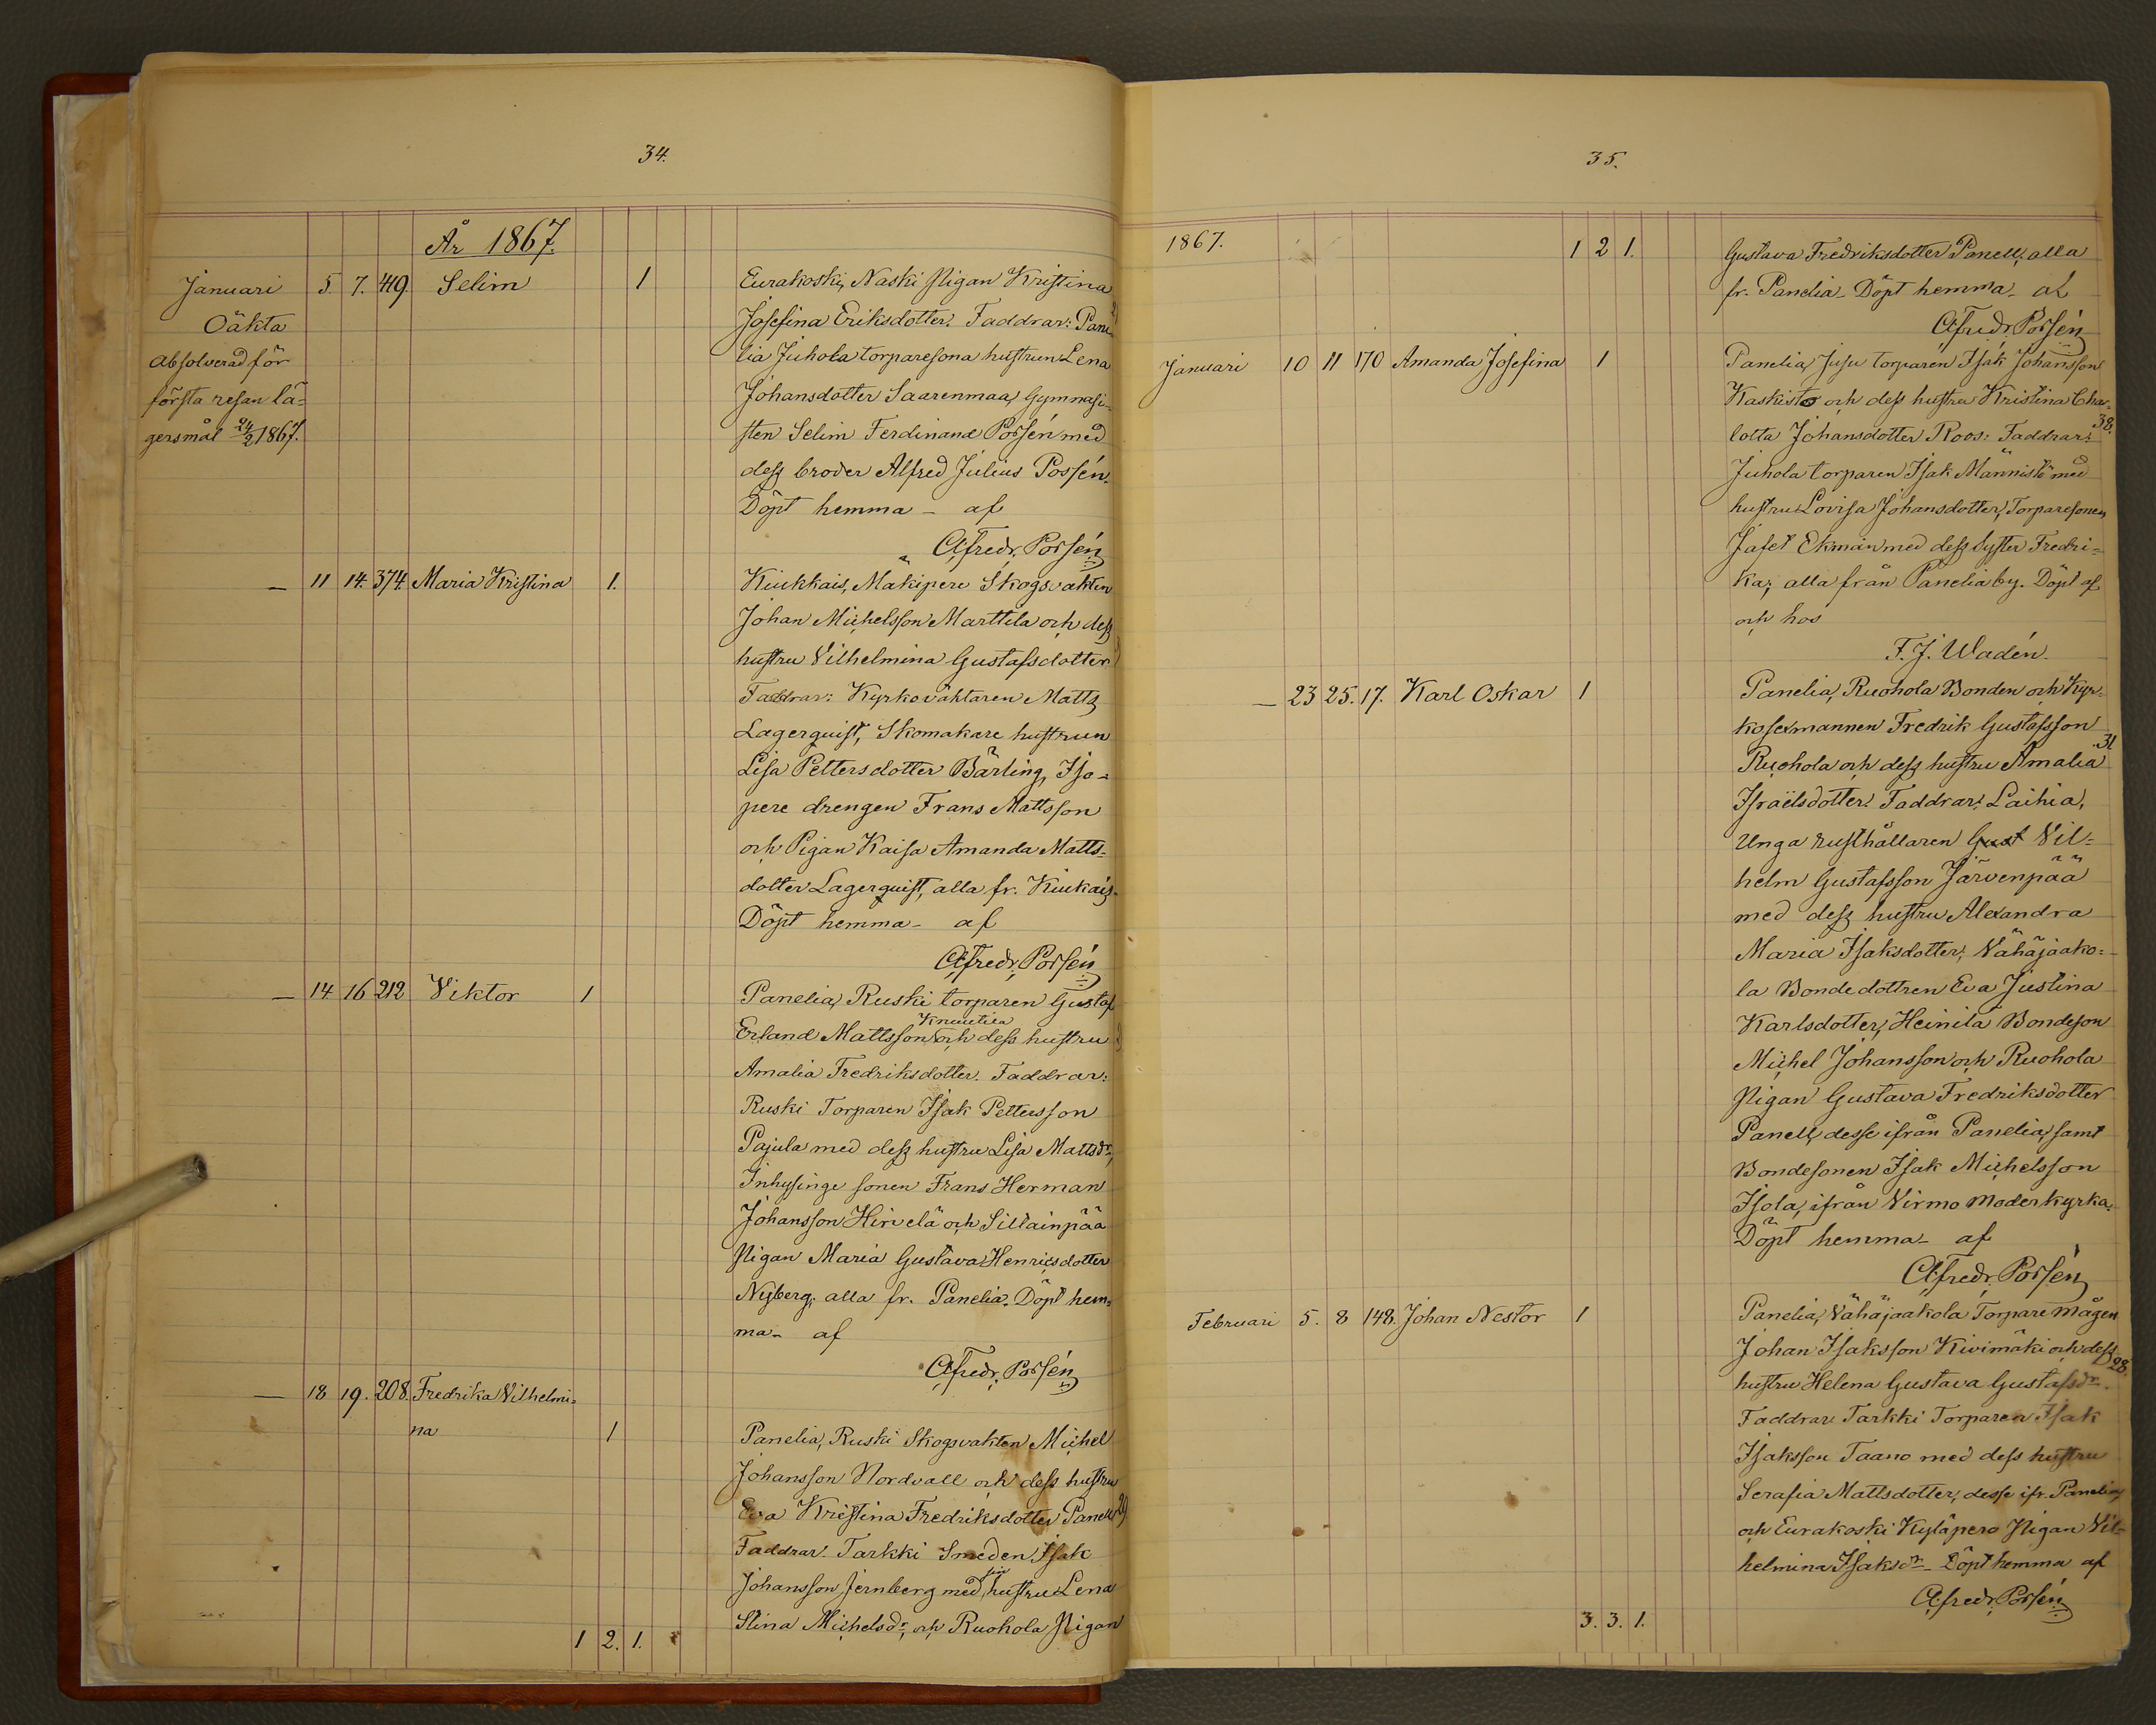 34.
År 1867.
Januari 5. 7. 419. Selim 1 Eurakoski, Naski Pigan Kristina
Oäkta Josefina Eriksdotter. Faddrar: Pane-
absolverad för lia Juhola torparesona hustrun Lena
första resan lä- Johansdotter Saarenmaa, Gymnasi-
gersmål 24/2 1867. sten Selim Ferdinand Porsén med
dess broder Alfred Julius Possén.
Döpt hemma - af
A. Fredr. Porsén
— 11 14. 374. Maria Kristina 1. Kiukkais, Mäkipere Skogsvakten
Johan Michelsson Marttila och dess
hustru Vilhelmina Gustafsdotter
Faddrar: Kyrkoväktaren Matts
Lagerquist, Skomakare hustrun
Lisa Pettersdotter Bärling, Iso-
pere drengen Frans Mattsson
och Pigan Kaisa Amanda Matts-
dotter Lagerquist, alla fr. Kiukais.
Döpt hemma - af
A. Fredr. Porsén
— 14 16 212 Viktor 1 Panelia, Ruski torparen Gustaf
Knuutila
Erland Mattsson och dess hustru
Amalia Fredriksdotter. Faddrar:
Ruski Torparen Isak Pettersson
Pajula med dess hustru Lisa Mattsdr,
Inhysinge sonen Frans Herman
Johansson Hirvelä och Sillainpää
Pigan Maria Gustava Henricsdotter
Nyberg; alla fr. Panelia. Döpt hem-
ma - af
A. Fredr. Porsén
— 18 19. 208. Fredrika Vilhelmi-
na 1 Panelia, Ruski Skogsvakten Michel
Johansson Nordvall och dess hustru
Eva Kristina Fredriksdotter Panell 29
Faddrar: Tarkki Smeden Isak
Johansson Jernberg med sin hustru Lena
Stina Michelsdr, och Ruohola Pigan
1 2. 1.
35.
1867. 1 2 1. Gustava Fredriksdotter Panell, alla
fr. Panelia - Döpt hemma - af
A. Fredr. Porsén
Januari 10 11 170 Amanda Josefina 1 Panelia, Juju torparen Isak Johansson
Kaskisto och dess hustru Kristina Char-
lotta Johansdotter Roos: Faddrar: 38.
Juhola torparen Isak Männistö med
hustru Lovisa Johansdotter, Torparesonen
Jafet Ekman med dess syster Fredri-
ka; alla från Panelia by. Döpt af
och hos
F. J. Wadén.
— 23 25. 17. Karl Oskar 1 Panelia, Ruohola Bonden och Kyr-
kosexmannen Fredrik Gustafsson
Ruohola och dess hustru Amalia 31
Israëlsdotter. Faddrar: Laihia,
Unga rusthållaren Gust Vil-
helm Gustafsson Järvenpää
med dess hustru Alexandra
Maria Isaksdotter; Vähäjaako-
la Bondedottren Eva Justina
Karlsdotter, Heinilä Bondeson
Michel Johansson och Ruohola
Pigan Gustava Fredriksdotter
Panell, desse ifrån Panelia, samt
Bondesonen Isak Michelsson
Isola, ifrån Virmo moderkyrka.
Döpt hemma - af
A. Fredr. Porsén
Februari 5. 8 148. Johan Nestor 1 Panelia, Vähäjaakola Torpare mågen
Johan Isaksson Kivimäki och dess
hustru Helena Gustava Gustafsdr. 28.
Faddrar: Tarkki Torparen Isak
Isaksson Taano med dess hustru
Serafia Mattsdotter, desse ifr. Panelia,
och Eurakoski Kyläpero Pigan Vil-
helmina Isaksdr - Döpt hemma af
A. Fredr. Porsén
3. 3. 1.